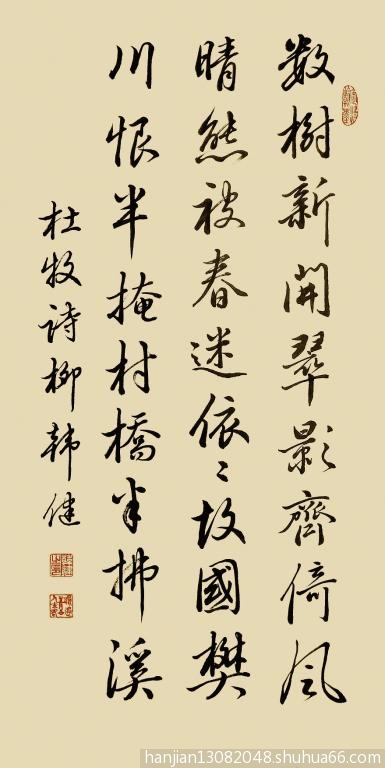 数樹新開翠影齊倚風
晴態被春迷依〻故國樊
川恨半掩村橋半拂溪
杜牧诗柳韩健
hanjian13082048.shuhua66.com